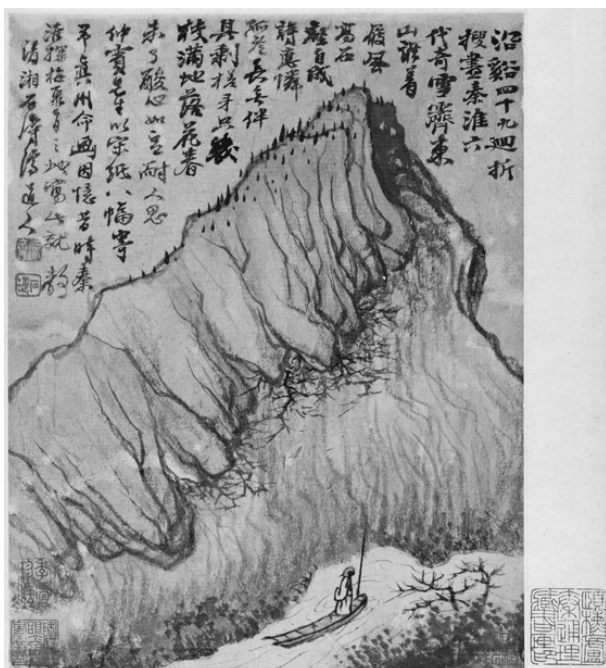 沿谿四十九迴折
搜盡秦淮六
代奇雪霽東
山誰著
屐風
高石
壑自成
詩應憐
孤長無伴
具剩槎牙只幾
枝滿地落花春
未了酸心如豆耐人思
仲賓先生以宋紙八幅寄
予真州命畫因憶昔時秦
淮探梅之地寫此就教
清湘石濤濟道人